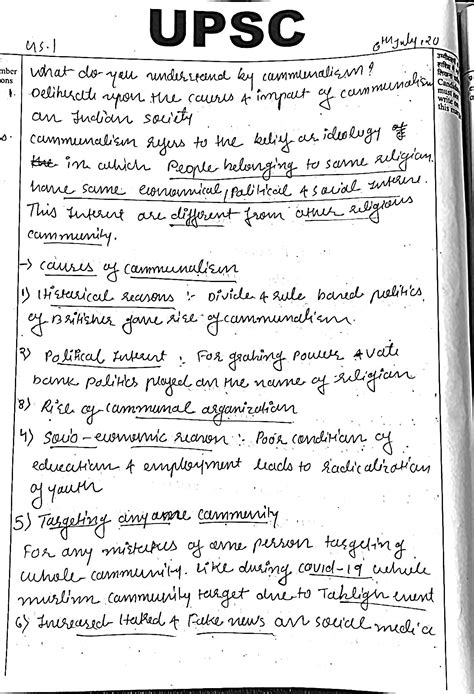 UPSC
GS-1
6th July, 20
mber
ons
1. What do you understand by communalism?
Deliberate upon the causes & impact of communalism
on Indian society
Communalism refers to the belief or ideology of
in which People belonging to same religion
have same economical, political & social interest.
This Interest are different from other religious
community.
→ causes of communalism
1) Historical reasons :- Divide & rule based politics
of Britisher gave rise of communalism.
2) Political Interest : For grabing power & Vote
bank politics played on the name of religion
3) Rise of communal organization
4) Socio-economic reason : Poor condition of
education & employment leads to radicalization
of youth
5) Targeting any one community
For any mistakes of one person targeting
whole community. Like during covid-19 whole
muslim community target due to Tabligh event
6) Increased Hatred & Fake news on social media
Can
must
write
this